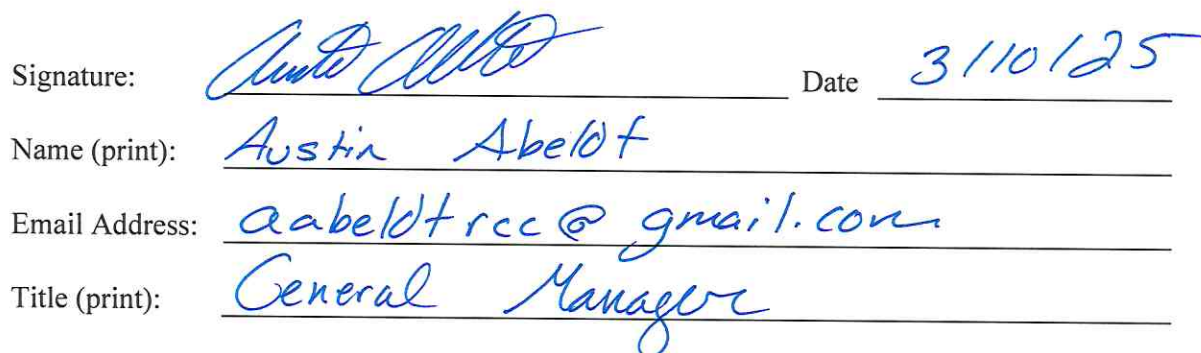 Signature: Date 3/10/25
Name (print): Austin Abeldt
Email Address: aabeldtrcc@gmail.com
Title (print): General Manager